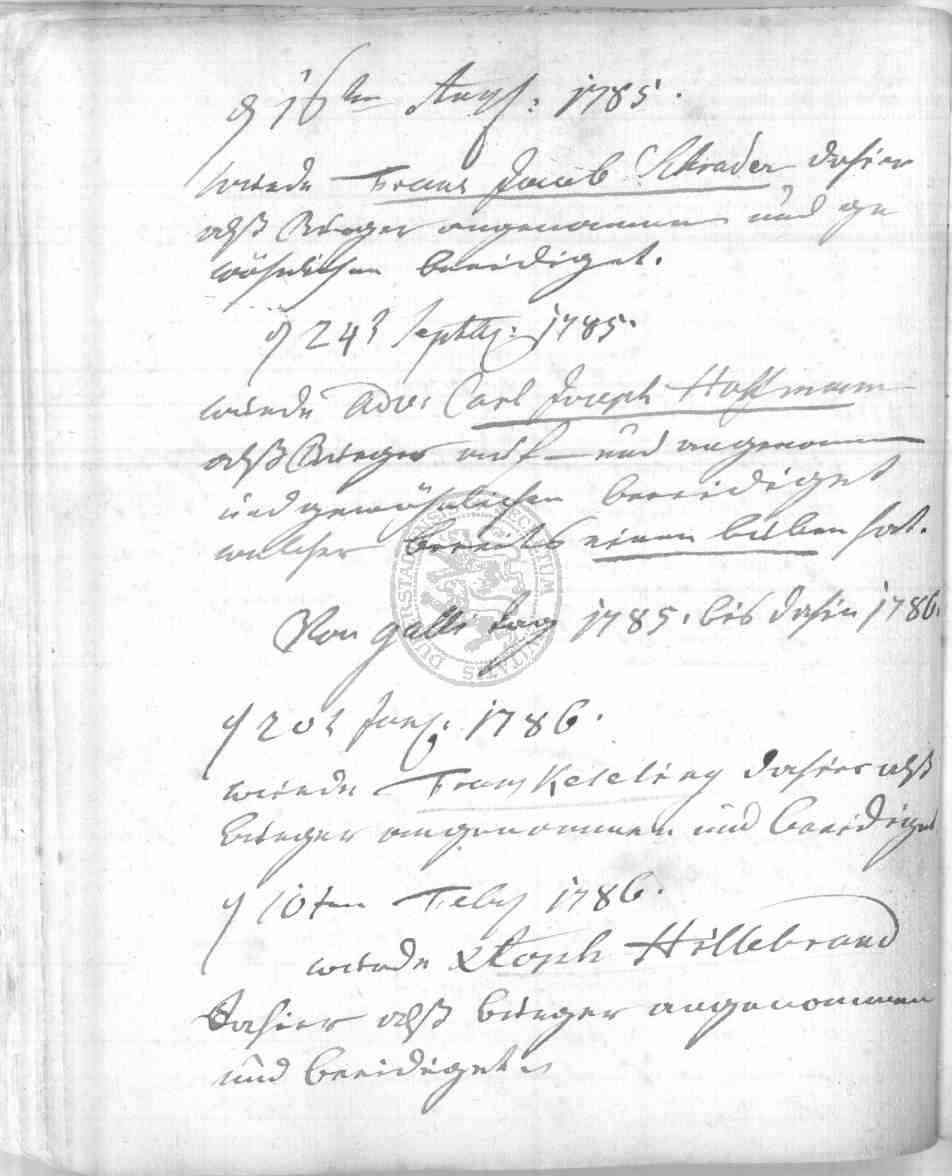 d 16ten Aug: 1785.
wurde Franz Jacob Schrader dahier
alß Bürger angenommen und ge
wöhnlichen beeidiget.
d 24t Septbr: 1785.
wurde Adv: Carl Joseph Hoffmann
alß Bürger auf- und angenommen
und gewöhnlichen beeidiget
welcher bereits einen buben hat.
Von galli tag 1785. bis dahin 1786.
d 20t Jan: 1786.
wurde Franz Keseling dahier alß
bürger angenommen und beeidiget
d 10ten Feby 1786.
wurde Xstoph Hillebrand
dahier alß bürger angenommen
und beeidiget